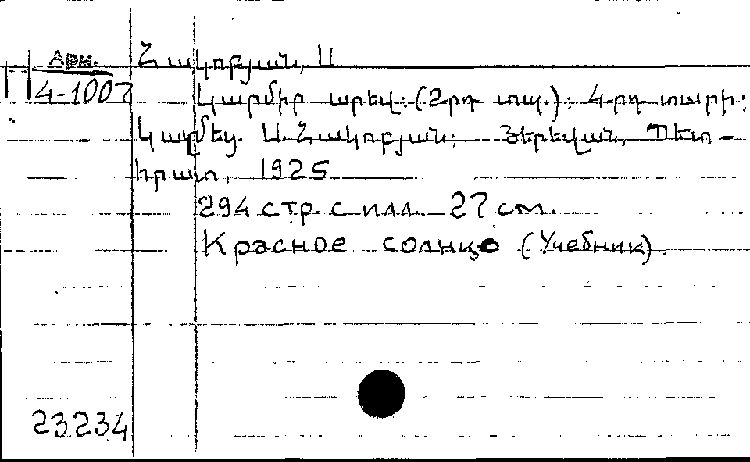 Арм.
4-1007
Հակոբյան, Ա
Կարմիր արեվ. (2րդ տպ.). 4-րդ տարի:
Կազմեց Ա. Հակոբյան: Յերեվան, Պետ-
հրատ, 1925
294 стр. с илл. 27 см.
Красное солнце (Учебник).
23234